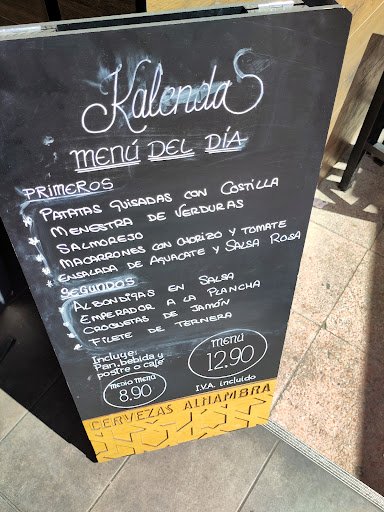 Kalendas
MENÚ DEL DÍA
PRIMEROS
* PATATAS GUISADAS CON COSTILLA
* MENESTRA DE VERDURAS
* SALMOREJO
* MACARRONES CON CHORIZO Y TOMATE
* ENSALADA DE AGUACATE Y SALSA ROSA
SEGUNDOS
* ALBONDIGAS EN SALSA
* EMPERADOR A LA PLANCHA
* CROQUETAS DE JAMÓN
* FILETE DE TERNERA
Incluye:
Pan, bebida y
postre o café
MEDIO MENÚ
8.90
MENÚ
12.90
I.V.A. incluido
CERVEZAS ALHAMBRA